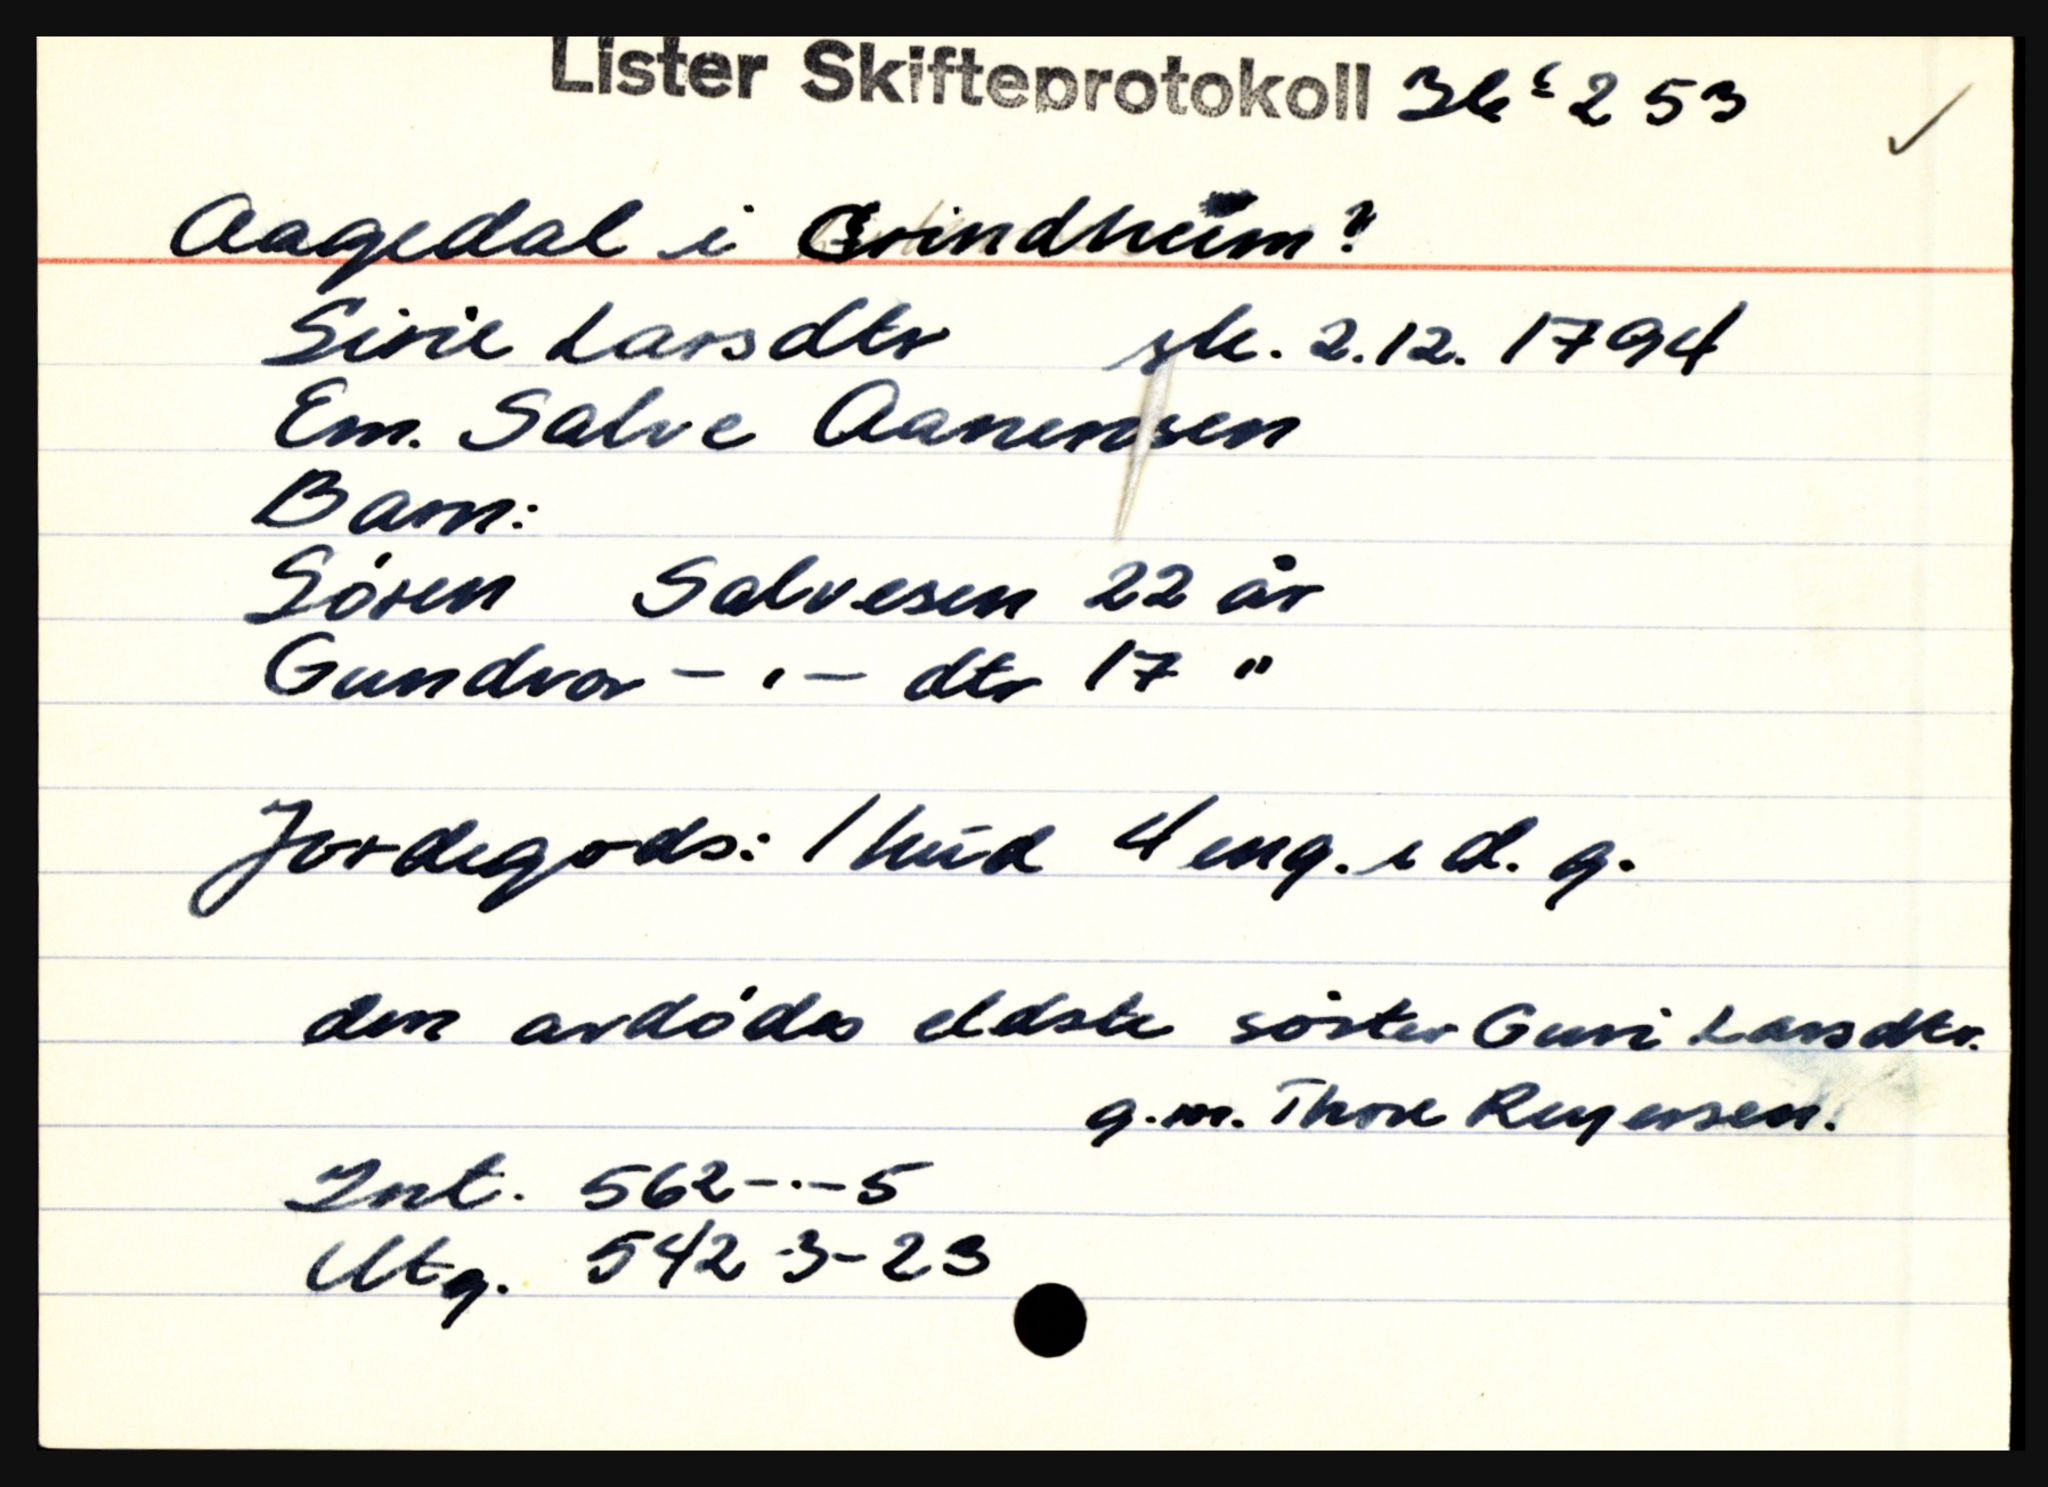 Lister Skifteprotokoll 36 253
Aagedal i Grindheim?
Sirie Larsdtr sk. 2.12. 1794
Em. Salve Aanensen
Barn:
Sören Salvesen 22 år
Gundvor - " - dtr 17 "
Jordegods: 1 hud 4 eng. i d. g.
den avdödes eldste söster Guri Larsdtr.
g.m. Thore Reyersen.
Int. 562 - - - 5
Utg. 542 - 3 - 23